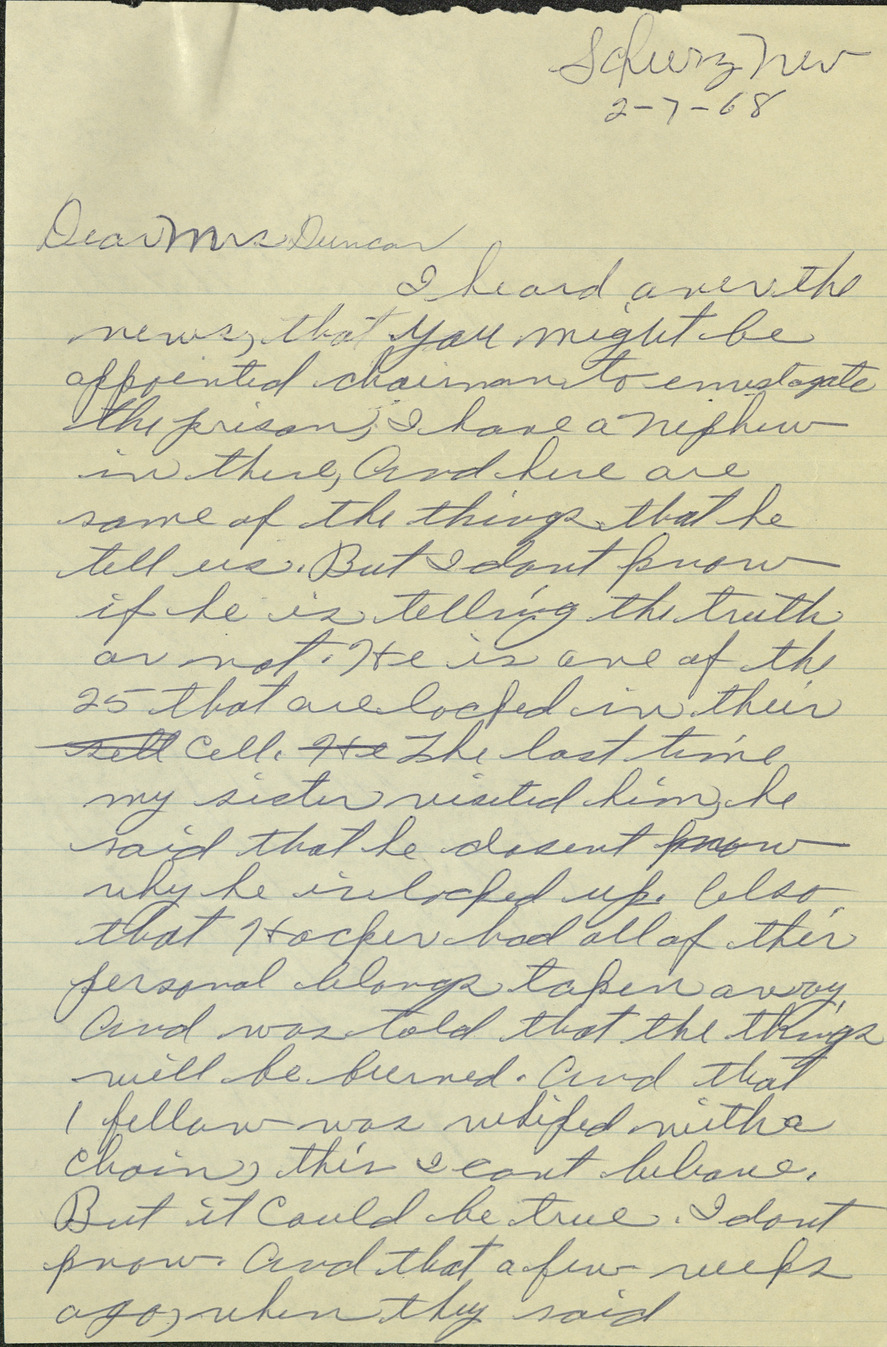 Schurz Nev
2-7-68
Dear Mrs Duncan
I heard over the
news, that you might be
appointed chairman to envestagate
the prison, I have a nephew
in there, And here are
some of the things that he
tell us. But I dont know
if he is telling the truth
or not. He is one of the
25 that are locked in their
sell cell. He The last time
my sister visited him, he
said that he dosent know
why he is locked up. Also
that Hocker had all of their
personal belongs taken away,
And was told that the things
will be burned. And that
1 fellow was whiped with a
chain, this I cant beleave.
But it could be true. I dont
know. And that a few weeks
ago, when they said